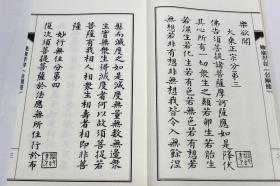 樂欲聞
大乘正宗分第三
佛告須菩提諸菩薩摩訶薩應如是降伏
其心所有一切眾生之類若卵生若胎生
若濕生若化生若有色若無色若有想若
無想若非有想非無想我皆令入無餘涅
槃而滅度之如是滅度無量無數無邊眾
生實無眾生得滅度者何以故須菩提若
菩薩有我相人相眾生相壽者相即非菩薩
妙行無住分第四
復次須菩提菩薩於法應無所住行於布